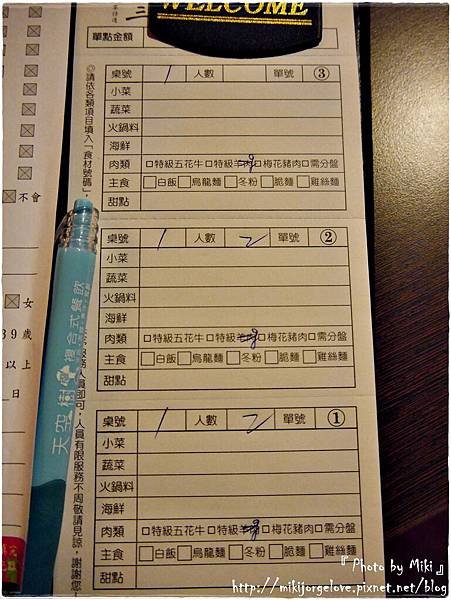 WELCOME
單點金額
桌號 1 人數 單號 ③
小菜
蔬菜
火鍋料
海鮮
肉類 □特級五花牛□特級羊肉□梅花豬肉□需分盤
主食 □白飯□烏龍麵□冬粉□脆麵□雞絲麵
甜點
桌號 1 人數 2 單號 ②
小菜
蔬菜
火鍋料
海鮮
肉類 □特級五花牛□特級□梅花豬肉□需分盤
主食 □白飯□烏龍麵□冬粉□脆麵□雞絲麵
甜點
桌號 1 人數 2 單號 ①
小菜
蔬菜
火鍋料
海鮮
肉類 □特級五花牛□特級□梅花豬肉□需分盤
主食 □白飯□烏龍麵□冬粉□脆麵□雞絲麵
甜點
◎請依各類項目填入「食材號碼」,
人員即可,人員有限服務不周敬請見諒,謝謝您
天空樹 複合式餐飲
不會
女
39歲
以上
日
『Photo by Miki』
http://mikijorgelove.pixnet.net/blog